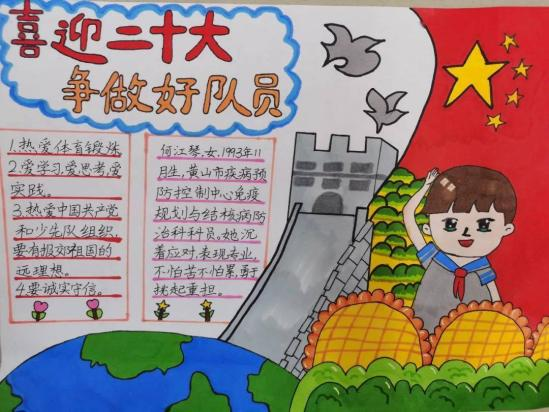 喜迎二十大
争做好队员
1.热爱体育锻炼.
2.爱学习爱思考,爱
实践。
3.热爱中国共产党
和少先队组织,
要有报效祖国的
远理想。
4.要诚实守信。
何江琴,女,1993年11
月生,黄山市疾病预
防控制中心免疫
规划与结核病防
治科科员。她沉
着应对,表现专业,
不怕苦不怕累,勇于
挑起重担。